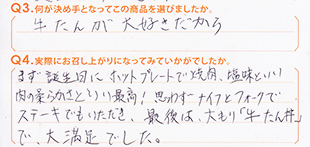 Q3.何が決め手となってこの商品を選びましたか。
牛たんが大好きだから
Q4.実際にお召し上がりになってみていかがでしたか。
まず誕生日にホットプレートで焼肉、塩味といい
肉の柔らかさといい最高!思わずナイフとフォークで
ステーキでもいただき、最後は、大もり「牛たん丼」
で、大満足でした。